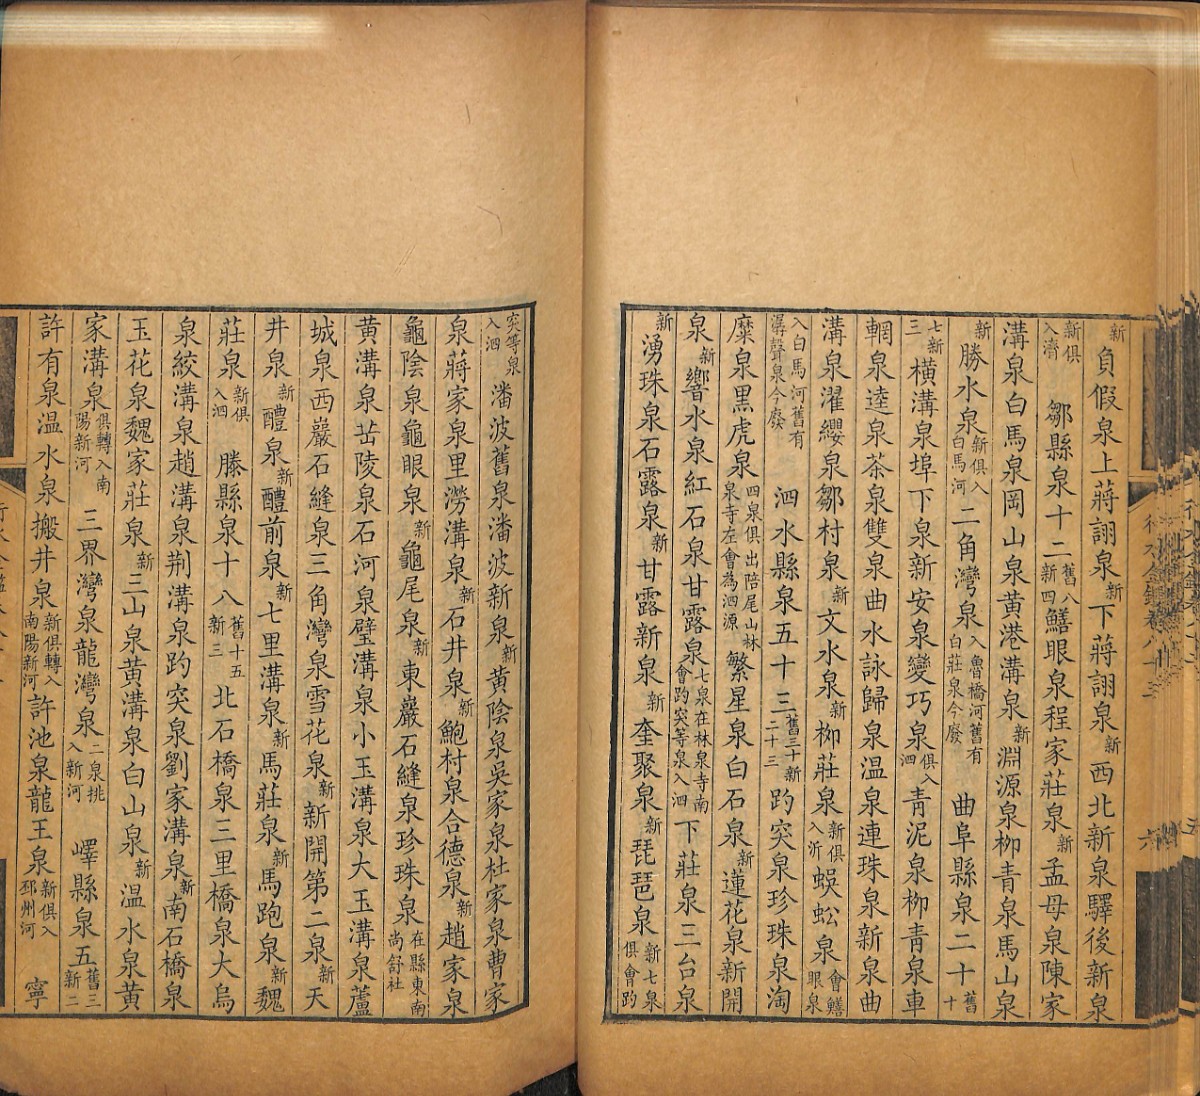 新負假泉上蔣詡泉新下蔣詡泉新西北新泉驛後新泉
新俱入濟鄒縣泉十二舊八新四鱔眼泉程家莊泉新孟母泉陳家
溝泉白馬泉岡山泉黃港溝泉新淵源泉柳青泉馬山泉
新勝水泉新俱入白馬河二角灣泉入魯橋河舊有白莊泉今廢曲阜縣泉二十舊十
七新三橫溝泉埠下泉新安泉變巧泉俱入泗青泥泉柳青泉車
輞泉逵泉茶泉雙泉曲水詠歸泉溫泉連珠泉新泉曲
溝泉濯纓泉鄒村泉新文水泉新柳莊泉新俱入沂蜈蚣泉會鱔眼泉
入白馬河舊有潺聲泉今廢泗水縣泉五十三舊三十新二十三趵突泉珍珠泉淘
糜泉黑虎泉四泉俱出陪尾山林泉寺左會為泗源繁星泉白石泉新蓮花泉新開
泉新響水泉紅石泉甘露泉七泉在林泉寺南會趵突等泉入泗下莊泉三台泉
新湧珠泉石露泉新甘露新泉新奎聚泉新琵琶泉新七泉俱會趵
突等泉入泗潘波舊泉潘波新泉新黃陰泉吳家泉杜家泉曹家
泉蔣家泉里澇溝泉新石井泉新鮑村泉合德泉新趙家泉
龜陰泉龜眼泉新龜尾泉新東巖石縫泉珍珠泉在縣東南尚舒社
黃溝泉岳陵泉石河泉璧溝泉小玉溝泉大玉溝泉蘆
城泉西巖石縫泉三角灣泉雪花泉新新開第二泉新天
井泉新醴泉新醴前泉新七里溝泉新馬莊泉新馬跑泉新魏
莊泉新俱入泗滕縣泉十八舊十五新三北石橋泉三里橋泉大烏
泉絞溝泉趙溝泉荆溝泉趵突泉劉家溝泉新南石橋泉
玉花泉魏家莊泉新三山泉黃溝泉白山泉新溫水泉黃
家溝泉俱轉入南陽新河三界灣泉龍灣泉二泉挑入新河嶧縣泉五舊三新二
許有泉溫水泉搬井泉新俱轉入南陽新河許池泉龍王泉新俱入邳州河寧